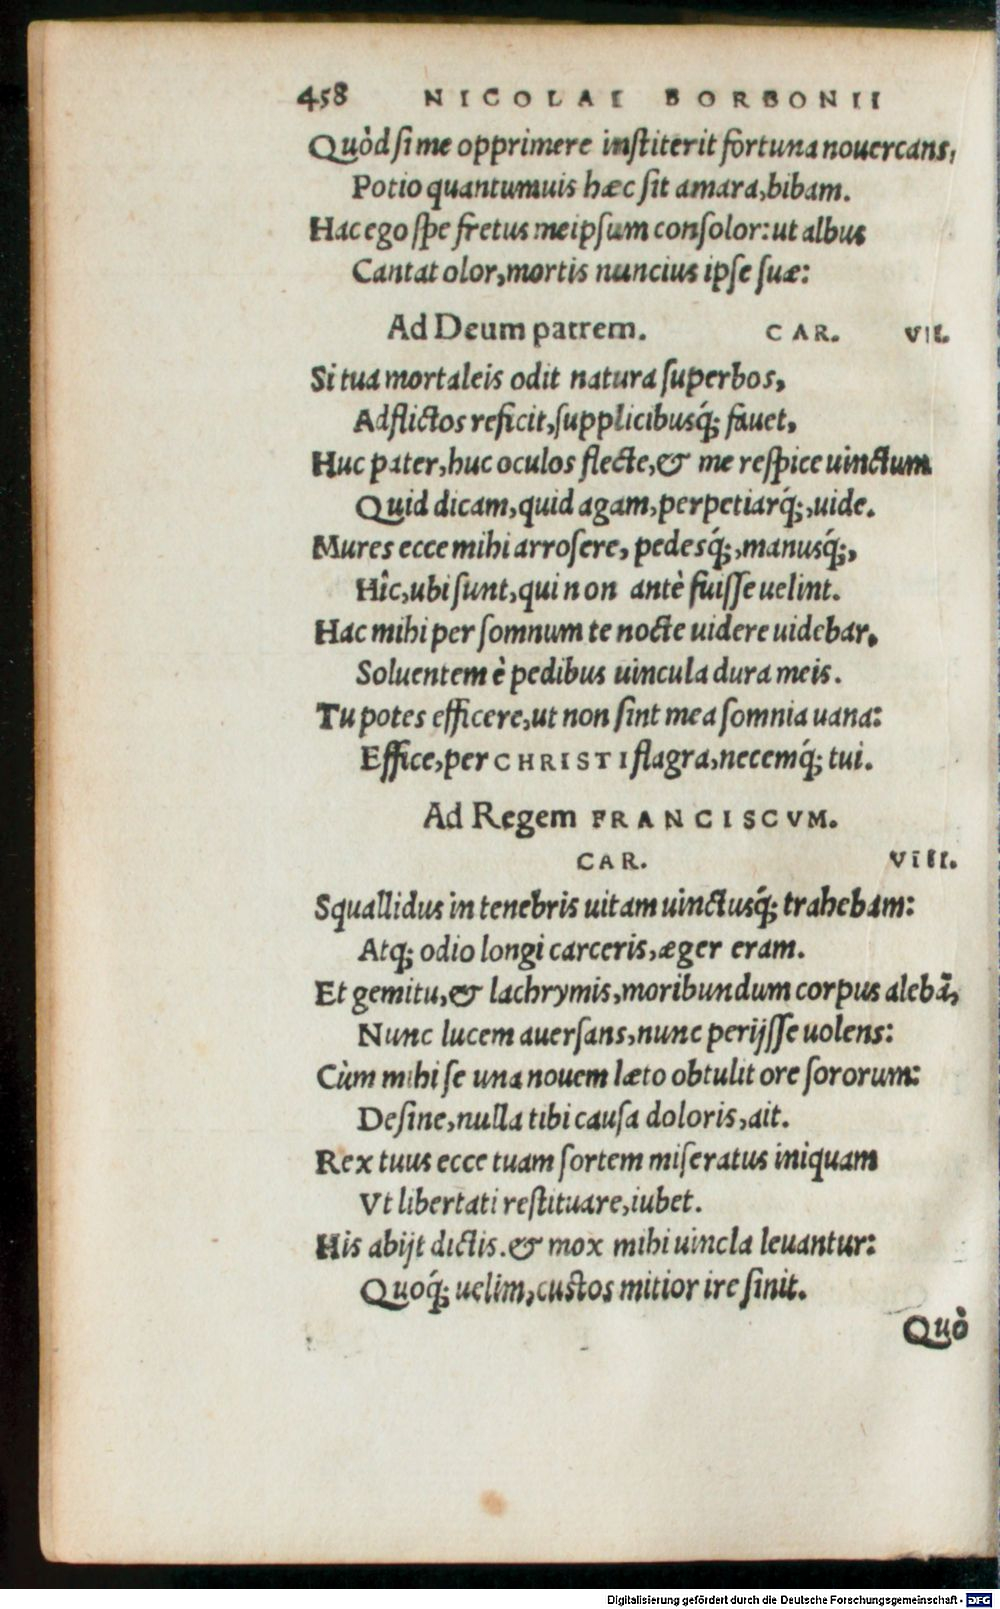 458 NICOLAI BORBONII
Quòd si me opprimere institerit fortuna nouercans,
Potio quantumuis hæc sit amara, bibam.
Hac ego spe fretus meipsum consolor: ut albus
Cantat olor, mortis nuncius ipse suæ:
Ad Deum patrem. CAR. VII.
Si tua mortaleis odit natura superbos,
Adflictos reficit, supplicibusq́; fauet,
Huc pater, huc oculos flecte, & me respice uinctum
Quid dicam, quid agam, perpetiarq́;, uide.
Mures ecce mihi arrosere, pedesq́;, manusq́;,
Hîc, ubi sunt, qui non antè fuisse uelint.
Hac mihi per somnum te nocte uidere uidebar,
Soluentem è pedibus uincula dura meis.
Tu potes efficere, ut non sint mea somnia uana:
Effice, per CHRISTI flagra, necemq́; tui.
Ad Regem FRANCISCVM.
CAR. VIII.
Squallidus in tenebris uitam uinctusq́; trahebam:
Atq; odio longi carceris, æger eram.
Et gemitu, & lachrymis, moribundum corpus alebã,
Nunc lucem auersans, nunc perijsse uolens:
Cùm mihi se una nouem læto obtulit ore sororum:
Desine, nulla tibi causa doloris, ait.
Rex tuus ecce tuam sortem miseratus iniquam
Vt libertati restituare, iubet.
His abijt dictis. & mox mihi uincla leuantur:
Quoq́; uelim, custos mitior ire sinit.
Quò
Digitalisierung gefördert durch die Deutsche Forschungsgemeinschaft - DFG